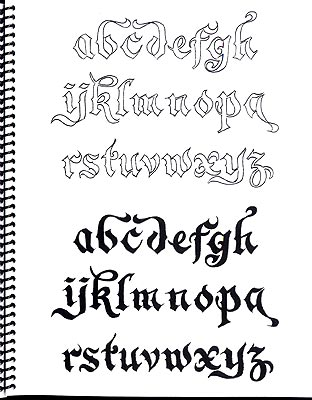 abcdefgh
ijklmnopq
rstuvwxyz
abcdefgh
ijklmnopq
rstuvwxyz